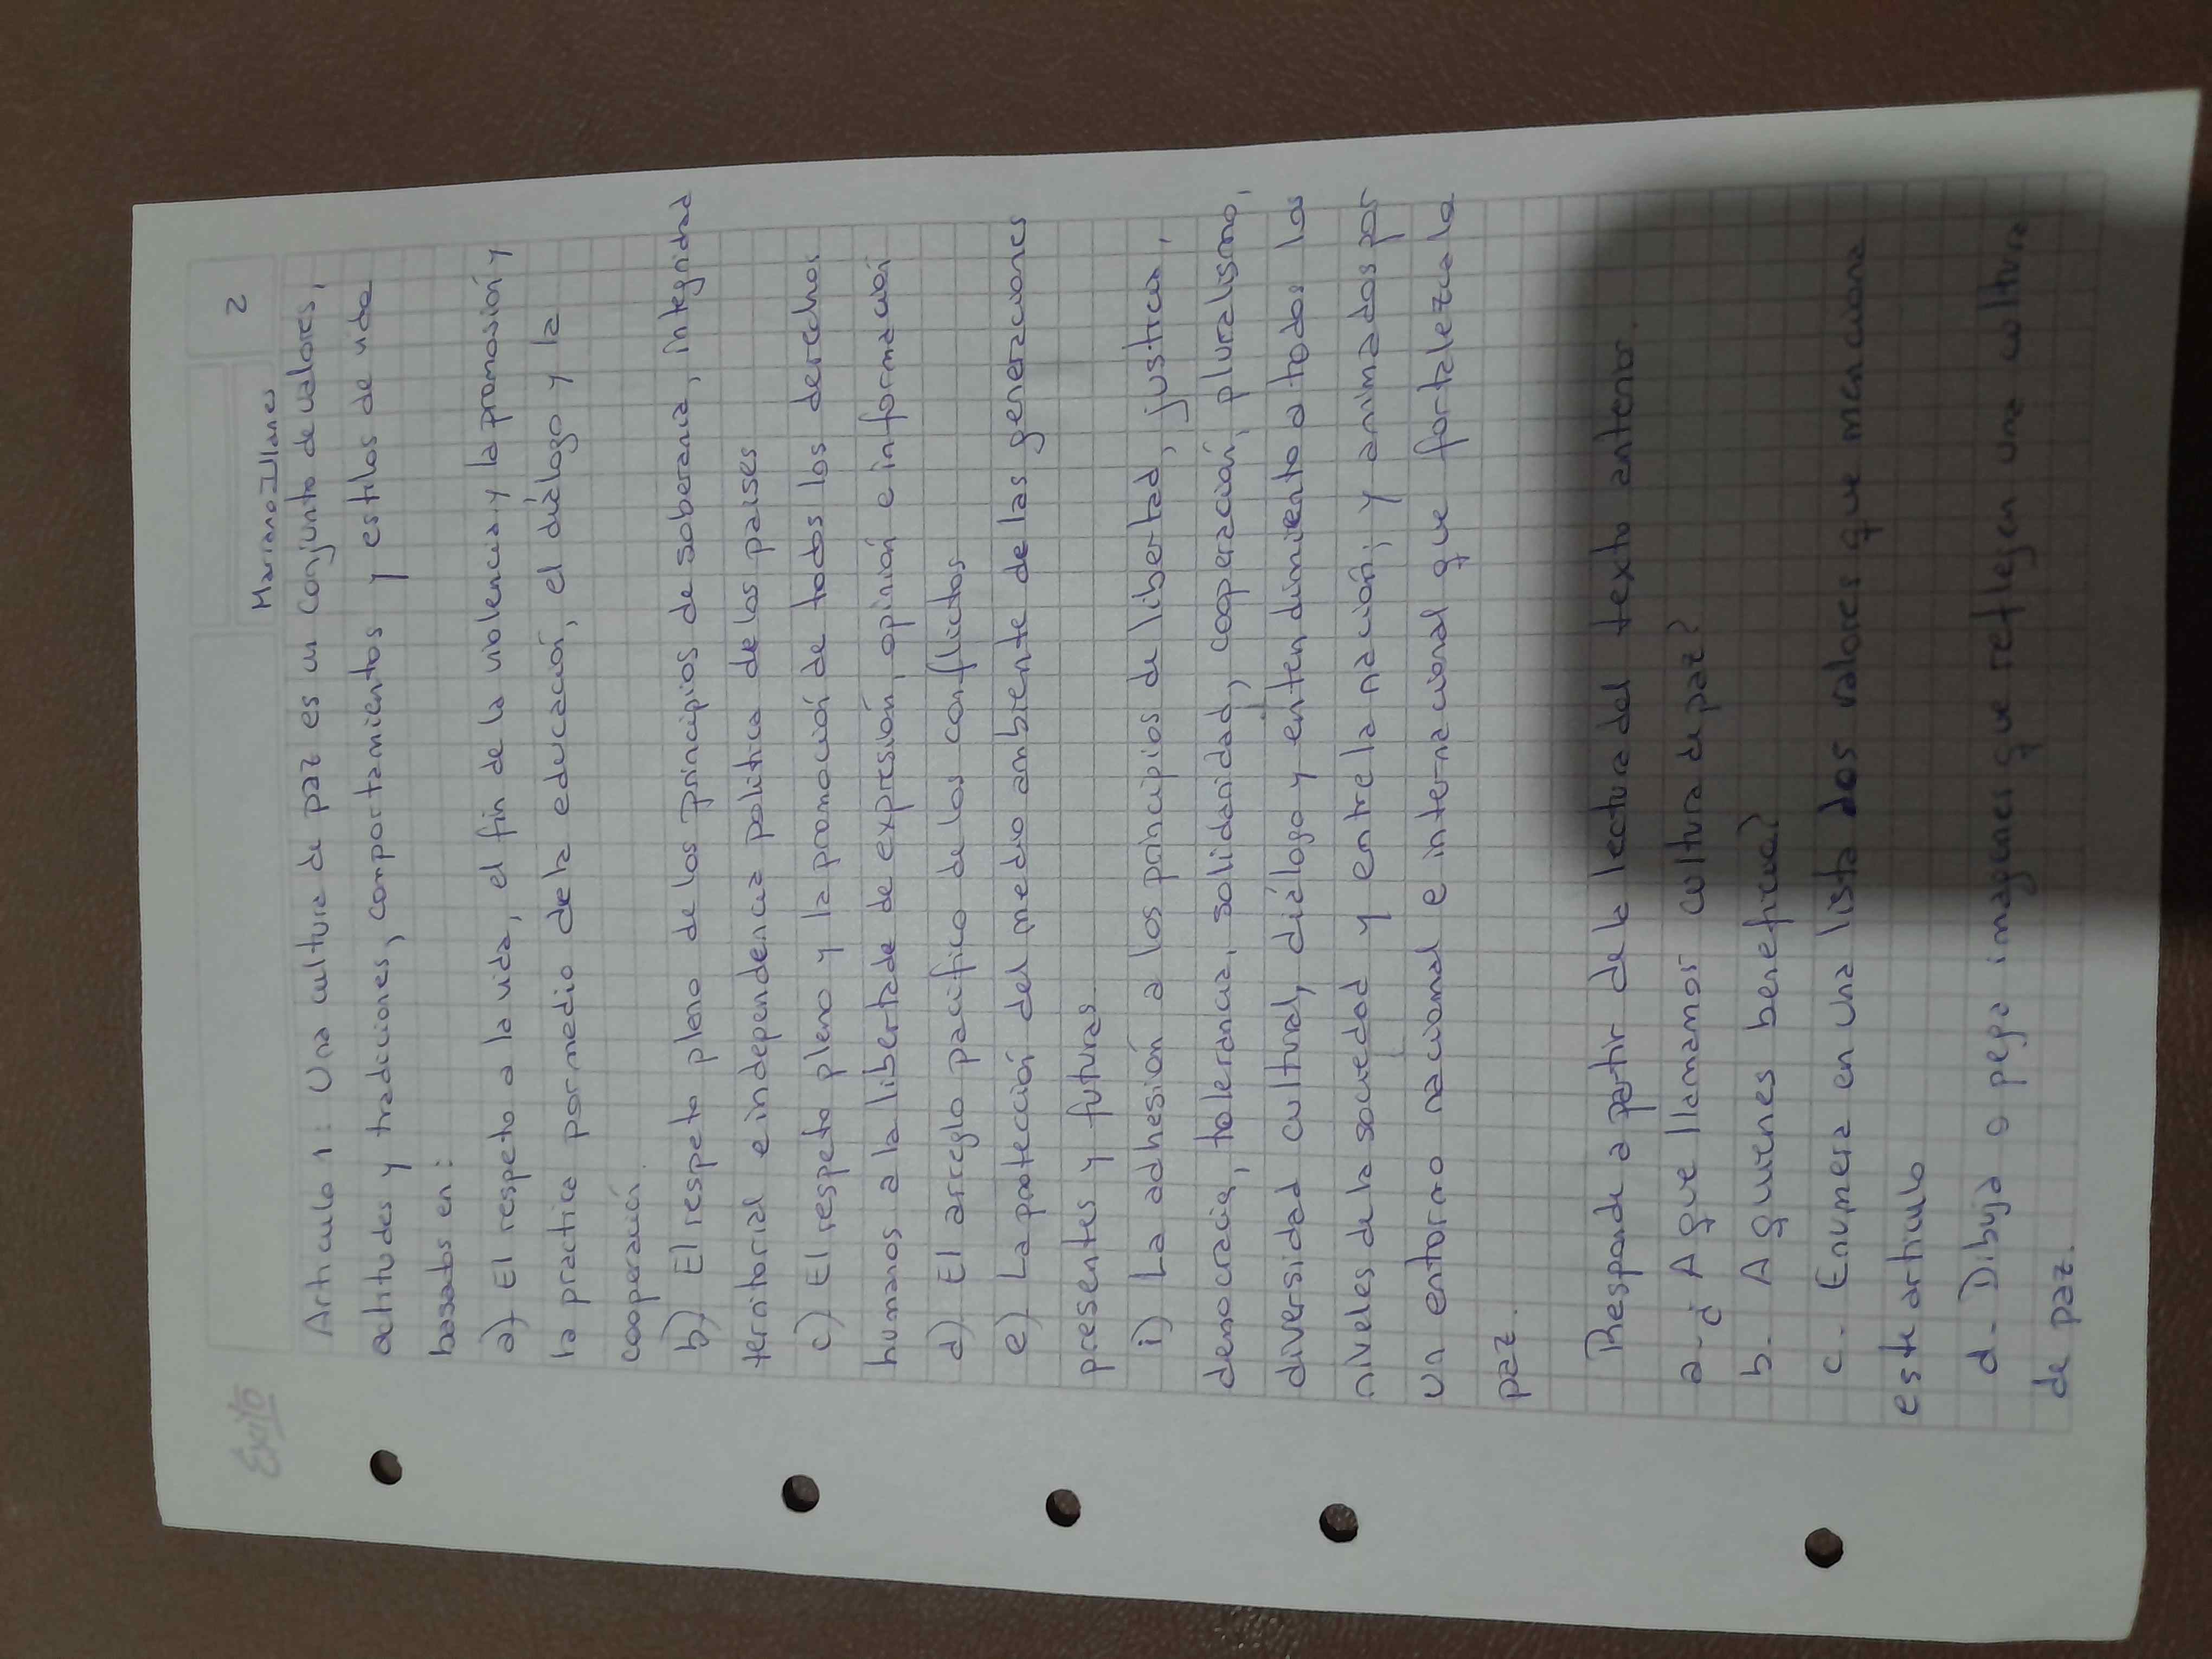 Exito
Mariano Illanes
2
Articulo 1: Una cultura de paz es un conjunto de valores,
actitudes y tradiciones, comportamientos y estilos de vida
basados en:
a) El respeto a la vida, el fin de la violencia y la promosión y
la practica por medio de la educación, el diálogo y la
cooperación.
b) El respeto pleno de los principios de soberania, integridad
territorial e independencia politica de los paises
c) El respeto pleno y la promoción de todos los derechos
humanos a la libertad de expresión, opinión e información
d) El arreglo pacifico de los conflictos
e) La protección del medio ambiente de las generaciones
presentes y futuras
i) La adhesión a los principios de libertad, justicia,
democracia, tolerancia, solidaridad, cooperación, pluralismo,
diversidad cultural, diálogo y entendimiento a todos los
niveles de la sociedad y entre la nación; y animados por
un entorno nacional e internacional que fortalezca la
paz.
Responde a partir de la lectura del texto anterior.
a- ¿ A que llamamos cultura de paz?
b- A quienes beneficia?
c- Enumera en una lista los valores que menciona
este articulo
d- Dibuja o pega imagenes que reflejen una cultura
de paz.